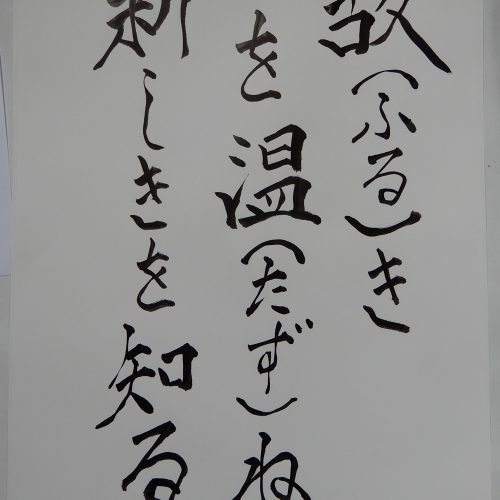 故(ふる)き
を温(たずず)ね
新しきを知る